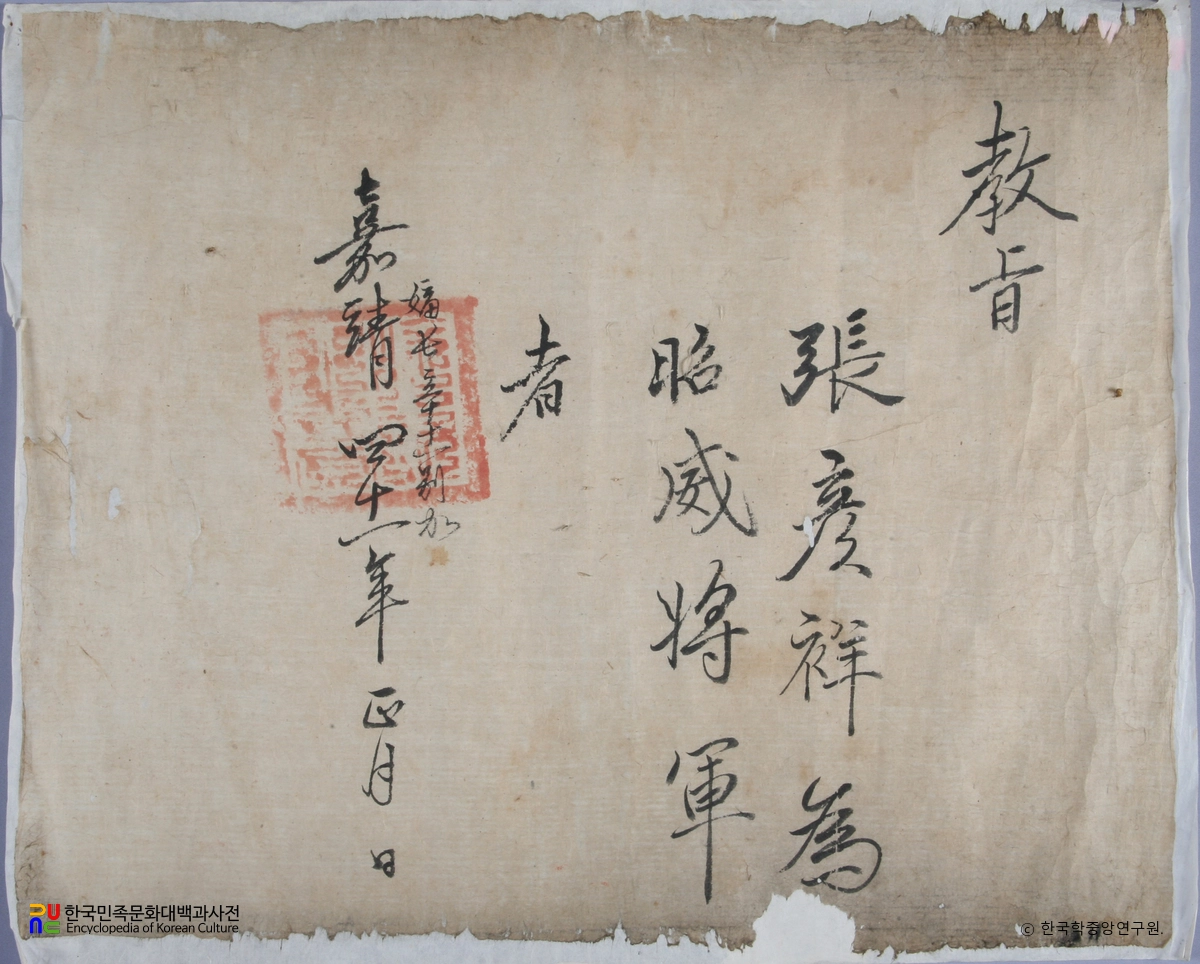 教旨
張彦祥為
昭威將軍
者
嘉靖四十一年正月日
별加
한국민족문화대백과사전
Encyclopedia of Korean Culture
ⓒ 한국학중앙연구원.